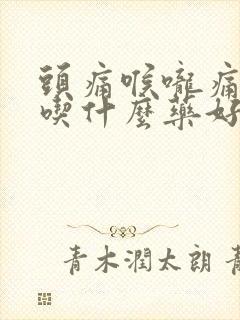 頭痛喉嚨痛
喫什麼藥好
青木潤太朗